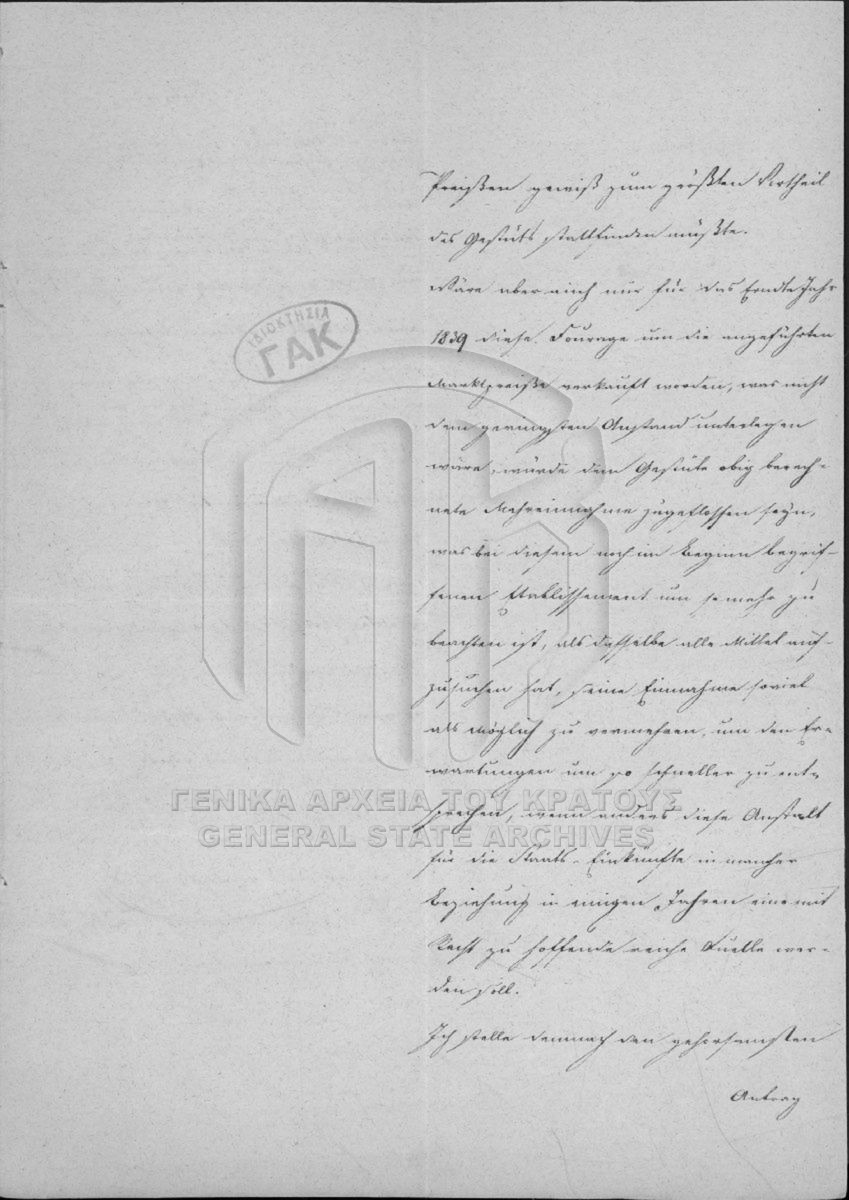 Preißen gewiß zum größten Vortheil
des Gestüts stattfinden müßte.
Wäre aber auch nur für das Erndte Jahr
1839 diese Fourage um die angeführten
Marktpreiße verkauft worden, was nicht
dem geringsten Anstand unterlegen
wäre, würde dem Gestüte obig berech-
nete Mehreinnahme zugeflossen seyn,
was bei diesem noch im Beginn begrif-
fenen Etablissement um so mehr zu
beachten ist, als dasselbe alle Mittel auf-
zusuchen hat, seine Einnahme soviel
als möglich zu vermehren, um den Er-
wartungen um so schneller zu ent-
sprechen, wenn anders diese Anstalt
für die Staats-Einkünfte in mancher
Beziehung in einigen Jahren eine mit
Recht zu hoffende reiche Quelle wer-
den soll.
Ich stelle demnach den gehorsamsten
Antrag
ΙΔΙΟΚΤΗΣΙΑ
ΓΑΚ
ΓΕΝΙΚΑ ΑΡΧΕΙΑ ΤΟΥ ΚΡΑΤΟΥΣ
GENERAL STATE ARCHIVES